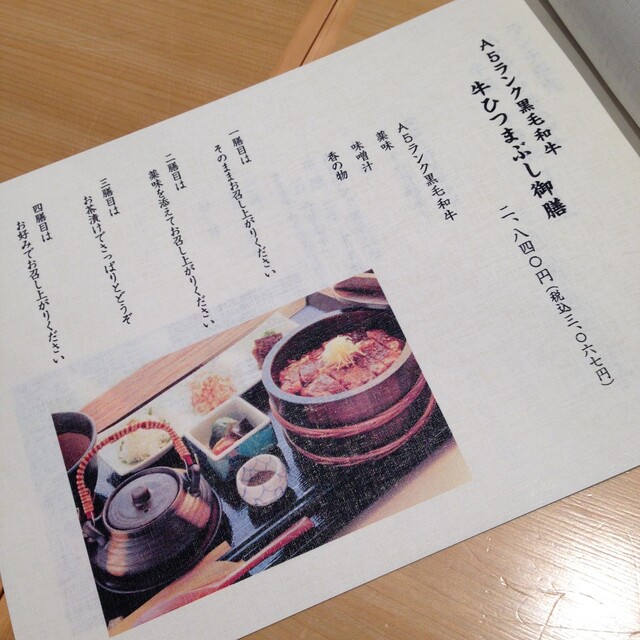 A5ランク黒毛和牛
牛ひつまぶし御膳
二、八四〇円(税込三、〇六七円)
A5ランク黒毛和牛
薬味
味噌汁
香の物
一膳目は
そのままお召し上がりください
二膳目は
薬味を添えてお召し上がりください
三膳目は
お茶漬けでさっぱりとどうぞ
四膳目は
お好みでお召し上がりください